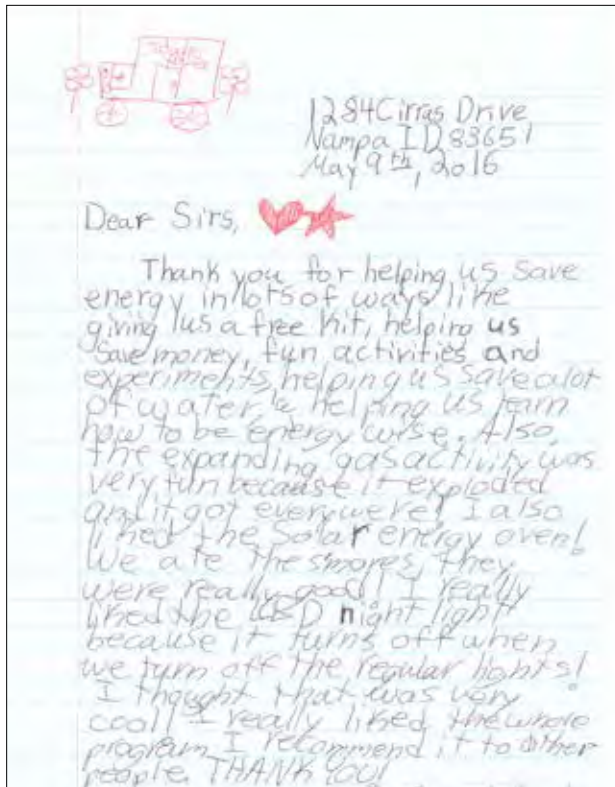 1284 Cirras Drive
Nampa ID 83651
May 9th, 2016
Dear Sirs,
Thank you for helping us save
energy in lots of ways like
giving us a free kit, helping us
save money, fun activities and
experiments, helping us save alot
of water, & helping us learn
how to be energy wise. Also,
the expanding gas activity was
very fun because it exploded
and it got everywere! I also
liked the Solar energy oven!
We ate the s'mores, they
were really good! I really
liked the LED night light
because it turns off when
we turn off the regular lights!
I thought that was very
cool! I really liked the whole
program I recommend it to other
people. THANK YOU!